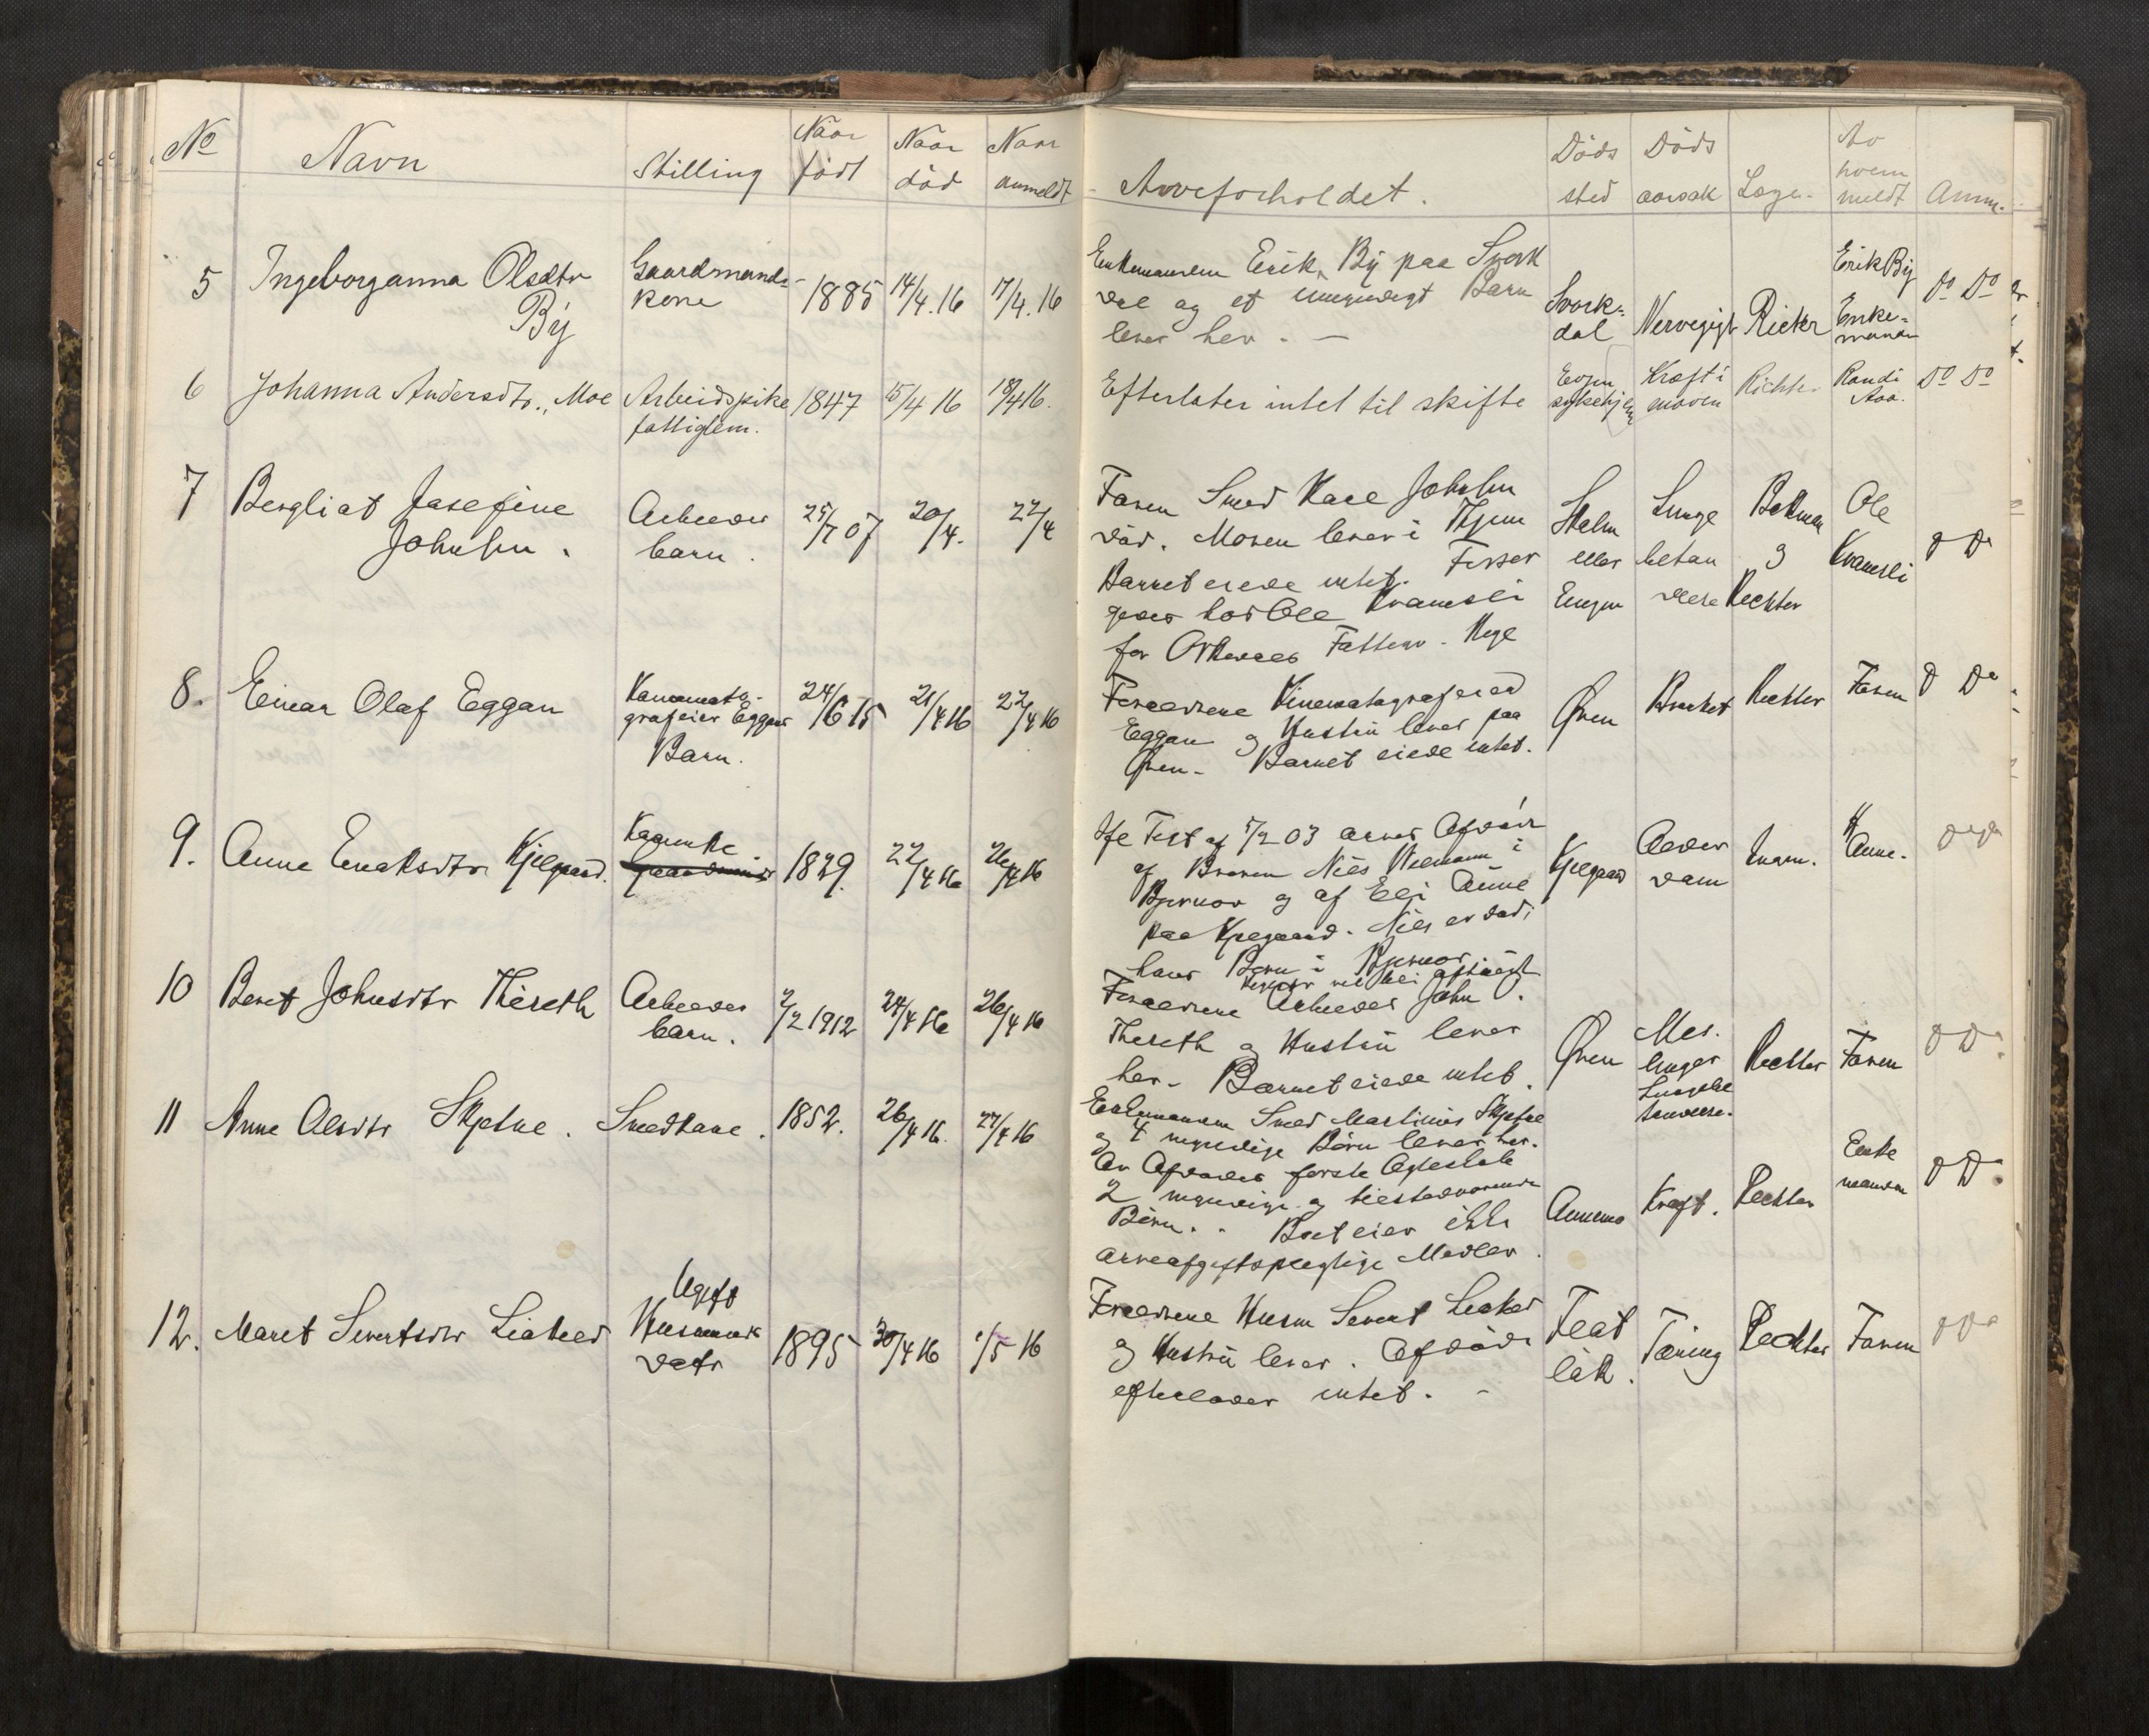 No Navn Stilling Naar født Naar død Naar anmeldt Arveforholdet. Døds sted Døds aarsak Læge. Av hvem meldt Anm.
5 Ingeborganna Olsdtr By Gaardmands- kone 1885 14/4.16 17/4.16
Enkemanden Erik By paa Svork
dal og et umyndigt Barn
lever her. —
Svork- dal Nervegigt Richter Erik By Enke- manden Do Do
6 Johanna Andersdtr., Moe Arbeidspike fattiglem. 1847 15/4 16 18/4 16.
Efterlater intet til skifte
sykehjem Kræft i maven Richter Randi Aaa. Do Do
7 Bergliot Josefine Johnsen. Arbeider barn. 25/7 07 20/4. 22/4
Faren Smed Kael Johnsen
død. Moren lever i
Barnet eiede intet.
hos Ole Kvamsli
for Orkedal Fattigv.
Lunge betæn delse og Richter Ole Kvamsli D Do
8. Einar Olaf Eggan Kinemato- grafeier Eggans Barn. 24/6 15 21/4 16 22/4 16
Forældrene Kinematografeier
Eggan og Hustru lever paa
Øren. Barnet eiede intet.
Øren Brukket Richter Faren D Do
9. Anne Eriksdtr Kjelgaard. 1829. 22/4 16 26/4 16
Ife Test af 5/2 03 arves Afdøde
af Broren Nils Wiemann i
og af Eli Anne
paa Kjelgaard. Nils er død;
hans Børn i
Kjelgaard Alder dom Ingen. Anne.
10 Beret Johnsdtr Thereth Arbeider barn. 2/2 1912 24/4 16 26/4 16
Forældrene Arbeider John
Thereth og Hustru lever
her. Barnet eiede intet.
Øren Mes- linger Lungebe tændelse. Richter Faren D Do
11 Anne Olsdtr Skjetne. Smedkone. 1852. 26/4 16. 27/4 16
Enkemanden Smed Martinus Skjetne
og 4 myndige Børn lever her.
Av Afdødes første Ægteskab
2 myndige og tilstedværende
Børn. Boet eier ikke
arveafgiftspligtige Midler.
Annemo Kræft. Richter Enke manden D Do
12. Maret Sivertsdtr Liabed Ugift Husmands datr 1895 30/4 16 1/5 16
Forældrene Husm Sivert
og Hustru lever. Afdøde
efterlader intet. -
Tæring Richter Faren D Do